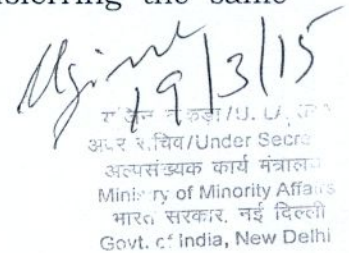 the same
19/3/15
अवर सचिव/Under Secre
अल्पसंख्यक कार्य मंत्रालय
Ministry of Minority Affairs
भारत सरकार, नई दिल्ली
Govt. of India, New Delhi